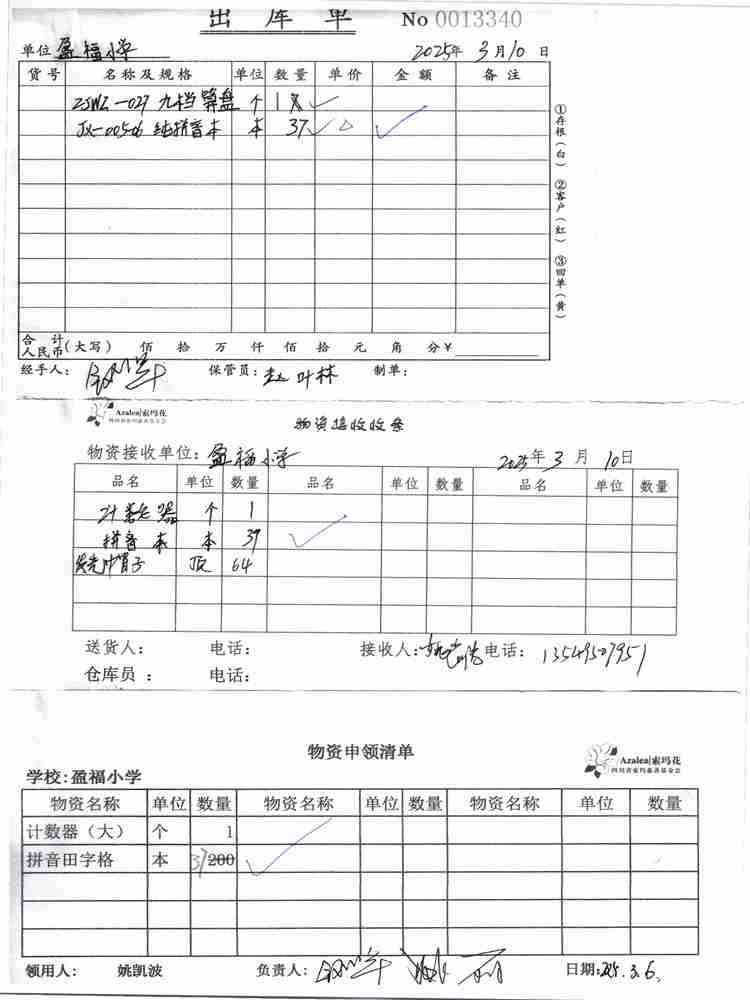 出库单 No 0013340
单位 盈福小学 2025年 3月10日
货号 名称及规格 单位 数量 单价 金额 备注
ZJWZ-027 九档算盘 个 1
JX-00506 纯拼音本 本 37
①存根(白) ②客户(红) ③回单(黄)
合计人民币(大写) 佰 拾 万 仟 佰 拾 元 角 分 ¥
经手人: 保管员: 赵叶林 制单:
Azalea|索玛花
四川省索玛慈善基金会
物资接收收条
物资接收单位: 盈福小学 2025年 3月 10日
品名 单位 数量 品名 单位 数量 品名 单位 数量
计数器 个 1
拼音本 本 37
顶 64
送货人: 电话: 接收人: 电话: 13549507951
仓库员: 电话:
物资申领清单
Azalea|索玛花
四川省索玛慈善基金会
学校:盈福小学
物资名称 单位 数量 物资名称 单位 数量 物资名称 单位 数量
计数器(大) 个 1
拼音田字格 本 37 200
领用人: 姚凯波 负责人: 日期: 2025.3.6.